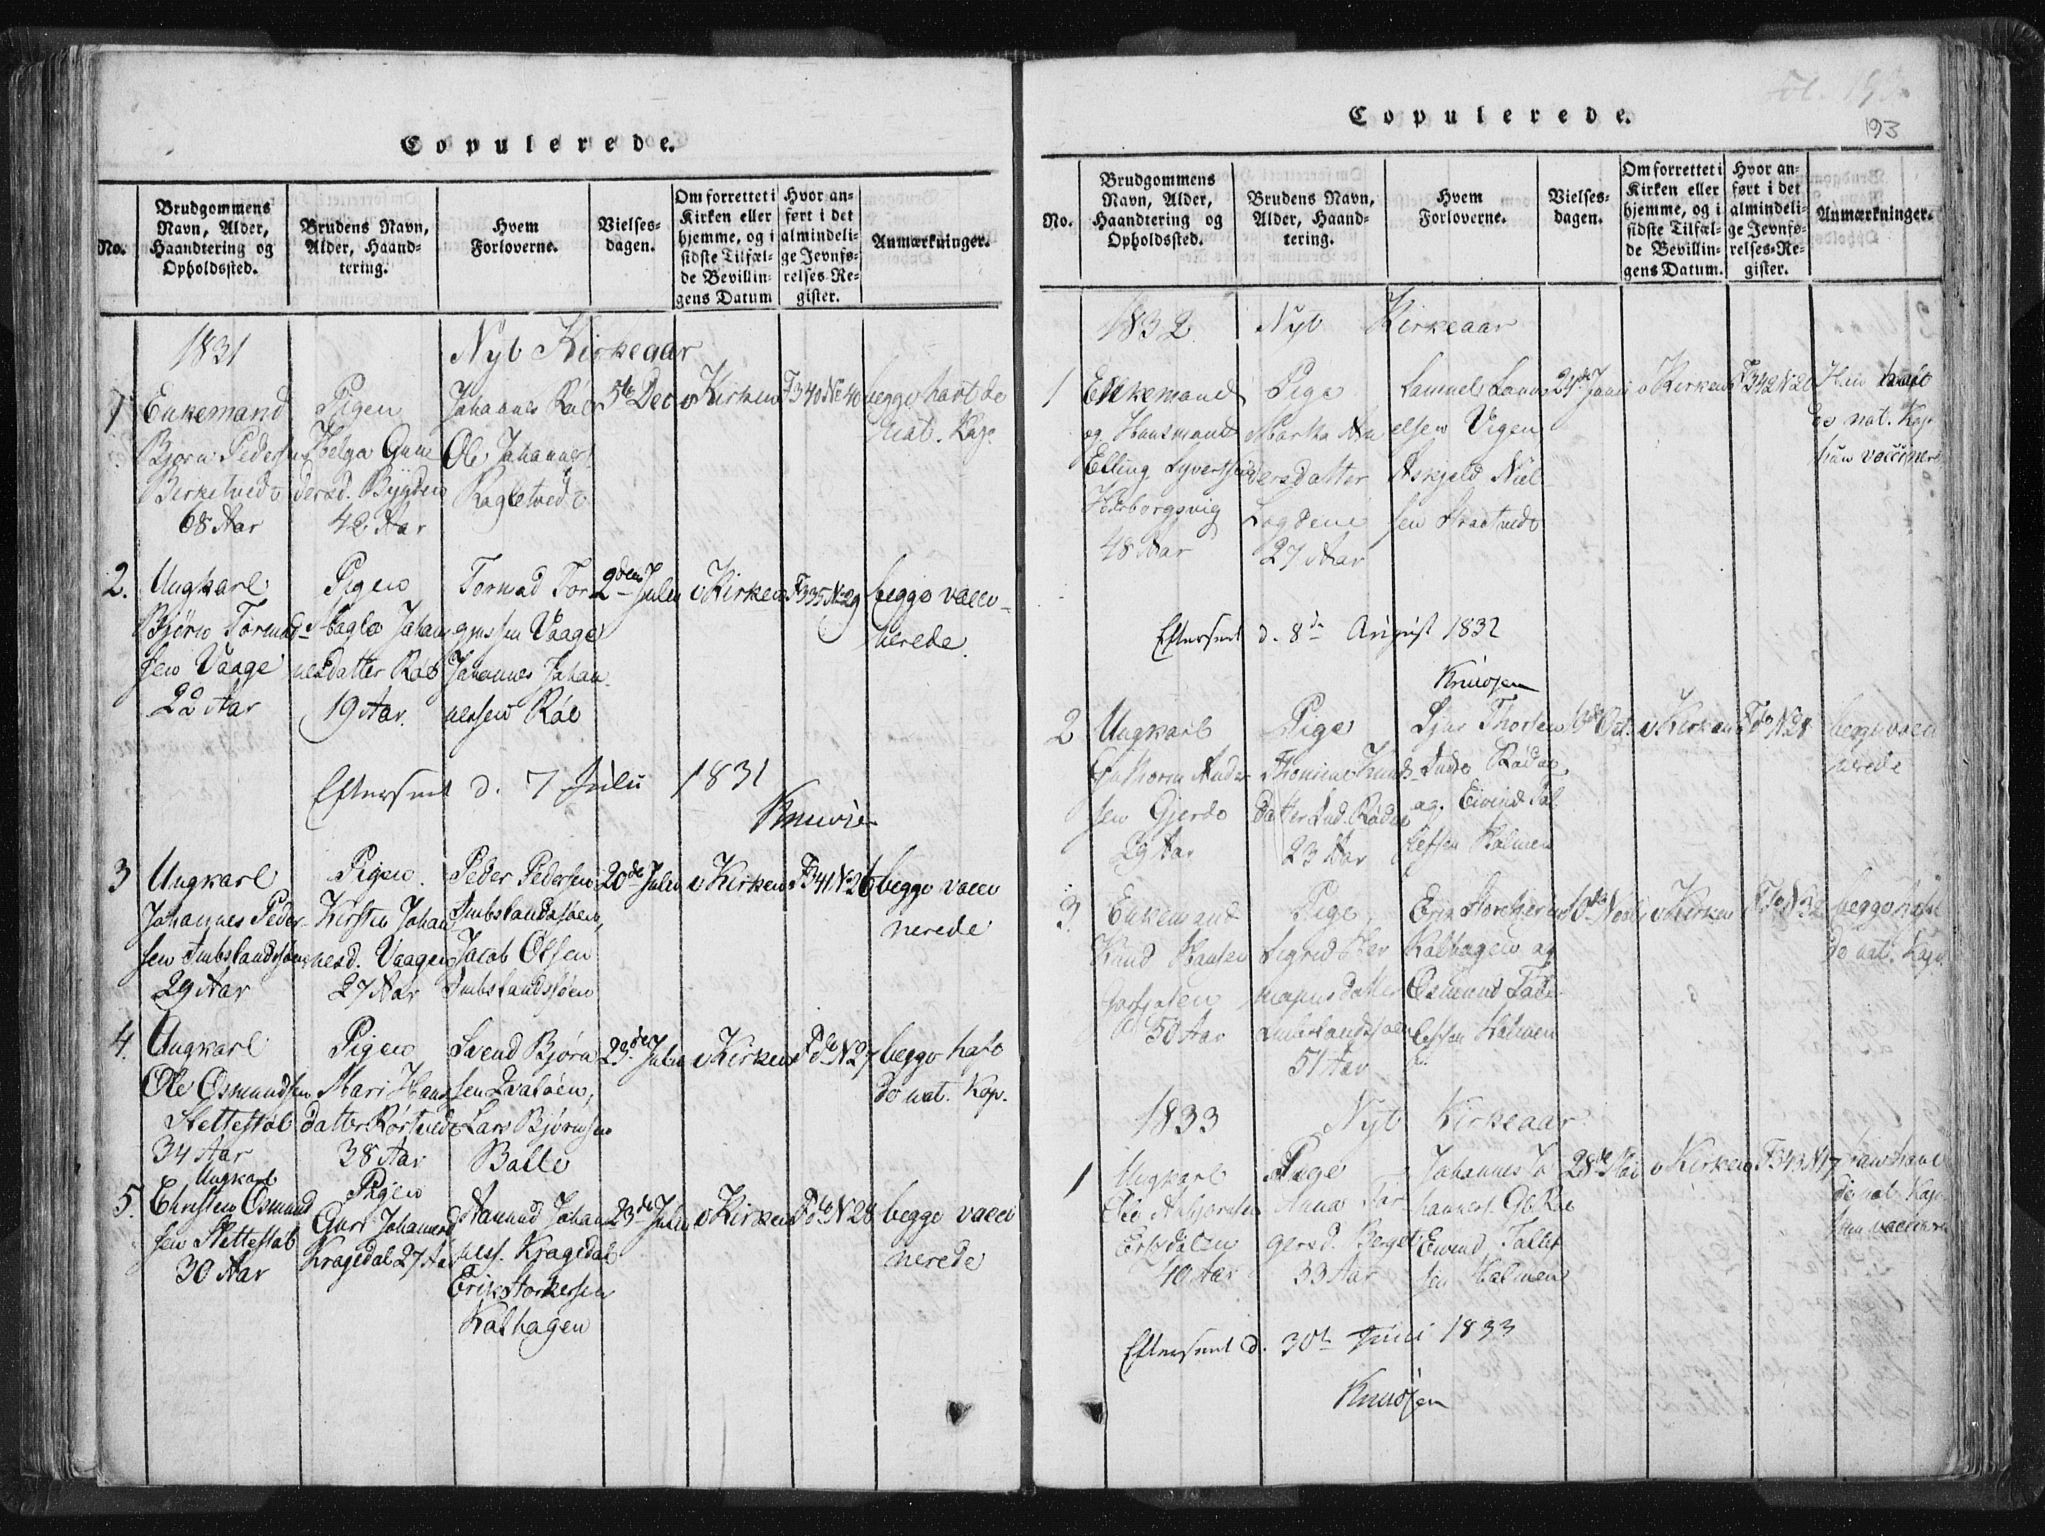 Copulerede.
No.
Brudgommens
Navn, Alder,
Haandtering og
Opholdssted.
Brudens Navn,
Alder, Haand-
tering.
Hvem
Forloverne.
Vielses-
dagen.
Om forrettet i
Kirken eller
hjemme, og i
sidste Tilfæl-
de Bevillin-
gens Datum
Hvor an-
ført i det
almindeli-
ge Jevnfø-
relses-Re-
gister.
Anmærkninger.
1831
Nyt Kirkeaar
1
Enkemand
Bjorn Pedersen
Birketvedt
68 Aar
Pigen
Helga Gun
dersd. Bygden
42 Aar
Johannes
Ole Johannes
5te Dec
i Kirken
F 340 No 40
begge havt de
Nat. Kop.
2.
Ungkarl
Bjørn Tormod
sen Vaage
22 Aar
Pigen
Johan
nesdatter
19 Aar.
Tormod Tor
gjussen Vaage
Johannes Johan
nessen
2den Julii
i Kirken
F 335 No 29
begge vacci-
nerede.
Efterseet d. 7 Julii 1831
Knudsen
3
Ungkarl
Johannes Peder-
sen Imbslandssøen
29 Aar
Pigen
Kirsten Johan
nesd. Vaagen
27 Aar
Peder Pedersen
Imbslandssøen,
Jacob Olsen
Imbslandssøen
20de Julii
i Kirken
F 341 N 26
begge vacci
nerede
4.
Ungkarl
Ole Osmundsen
Stettestøl
34 Aar
Pigen
Mari Hans
datter Rørtvedt
38 Aar
Svend Bjørn
sen
Lars Bjørnsen
Balle
23de Julii
i Kirken
F do N 27
begge hafe
do nat. Kop.
5.
Ungkarl
Christen Osmund
sen Stettestøl
30 Aar
Pigen
Guri Johannesd
Kragedal 27 Aar
Aanund Johan
ness. Kragedal
Erik Storkersen
Kalhagen
23de Julii
i Kirken
F do N 28
begge vacci
nerede
Copulerede.
193
No.
Brudgommens
Navn, Alder,
Haandtering og
Opholdssted.
Brudens Navn,
Alder, Haand-
tering.
Hvem
Forloverne.
Vielses-
dagen.
Om forrettet i
Kirken eller
hjemme, og i
sidste Tilfæl-
de Bevillin-
gens Datum.
Hvor an-
ført i det
almindeli-
ge Jevnfø-
relses-Re-
gister.
Anmærkninger.
1832.
Nyt Kirkeaar
1
Enkemand
og Huusmand
Elling Syvertsen
48 Aar
Pige
Martha An
dersdatter
27 Aar
elsen Vigen
Askjeld Niel
sen
24de
i Kirken
F 342 N 20
nat. Kop.
hun vaccineret
Eftersent d. 8de August 1832
Knudsen
2
Ungkarl
sen Gjerde
29 Aar
Pige
Knuds
datter
23 Aar
og Eivind Tal
lefsen Holmen
Oct.
i Kirken
F do N 28
begge vacci
nerede
3.
Enkemand
Knud Hansen
50 Aar
Pige
Sigrid
51 Aar
Erik Storkersen
Kalhagen og
Osmund Talle
lefsen Holmen
i Kirken
F do N 32
begge hafe
do nat. Kop.
1833
Nyt Kirkeaar
1
Ungkarl
Ole
40 Aar
Pige
Anna Tor
gersd. Berget
33 Aar
Johannes Jo
Eivind Tallef
sen Holmen
28de Mai
i Kirken
F 343 N 17
do nat. Kop.
hun vaccineret
Eftersent d. 30te Juni 1833
Knudsen